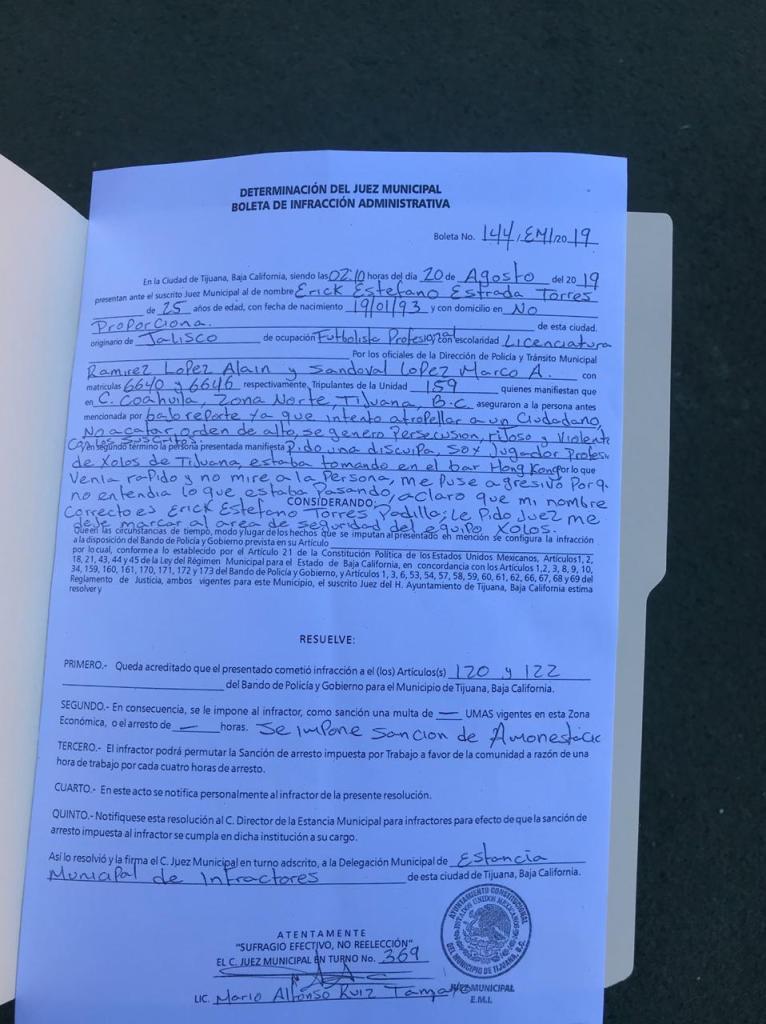 DETERMINACIÓN DEL JUEZ MUNICIPAL
BOLETA DE INFRACCIÓN ADMINISTRATIVA
Boleta No. 144/EMI/2019
En la Ciudad de Tijuana, Baja California, siendo las 02:10 horas del día 20 de Agosto del 2019
presentan ante el suscrito Juez Municipal al de nombre Erick Estefano Estrada Torres
de 25 años de edad, con fecha de nacimiento 19/01/93 y con domicilio en No
Proporciona. de esta ciudad.
originario de Jalisco de ocupación Futbolista Profesional con escolaridad Licenciatura
Por los oficiales de la Dirección de Policía y Tránsito Municipal
Ramirez Lopez Alain y Sandoval Lopez Marco A. con
matrículas 6640 y 6646 respectivamente, Tripulantes de la Unidad 159 quienes manifiestan que
en C. Coahuila, Zona Norte, Tijuana, B.C. aseguraron a la persona antes
mencionada por bajo reporte ya que intento atropellar a un Ciudadano,
No acatar orden de alto, se genero Persecusion, Rijoso y Violento
Con los suscritos.
en segundo termino la persona presentada manifiesta Pido una disculpa, Soy Jugador Profesi
de Xolos de Tijuana, estaba tomando en el bar Hong Kong por lo que
Venia rapido y no mire a la Persona, me puse agresivo Porq.
no entendia lo que estaba Pasando, aclaro que mi nombre
CONSIDERANDO:
Correcto es Erick Estefano Torres Padilla; Le Pido Juez me
deje marcar al area de seguridad del equipo Xolos.
Que en las circunstancias de tiempo, modo y lugar de los hechos que se imputan al presentado en mención se configura la infracción
a la disposición del Bando de Policía y Gobierno prevista en su Artículo
por lo cual, conforme a lo establecido por el Artículo 21 de la Constitución Política de los Estados Unidos Mexicanos, Artículos 1, 2,
18, 21, 43, 44 y 45 de la Ley del Régimen Municipal para el Estado de Baja California, en concordancia con los Artículos 1,2, 3, 8, 9, 10,
34, 159, 160, 161, 170, 171, 172 y 173 del Bando de Policía y Gobierno, y Artículos 1, 3, 6, 53, 54, 57, 58, 59, 60, 61, 62, 66, 67, 68 y 69 del
Reglamento de Justicia, ambos vigentes para este Municipio, el suscrito Juez del H. Ayuntamiento de Tijuana, Baja California estima
resolver y
RESUELVE:
PRIMERO.- Queda acreditado que el presentado cometió infracción a el (los) Artículos(s) 120 y 122
del Bando de Policía y Gobierno para el Municipio de Tijuana, Baja California.
SEGUNDO.- En consecuencia, se le impone al infractor, como sanción una multa de — UMAS vigentes en esta Zona
Económica, o el arresto de — horas. Se impone Sancion de
TERCERO.- El infractor podrá permutar la Sanción de arresto impuesta por Trabajo a favor de la comunidad a razón de una
hora de trabajo por cada cuatro horas de arresto.
CUARTO.- En este acto se notifica personalmente al infractor de la presente resolución.
QUINTO.- Notifiquese esta resolución al C. Director de la Estancia Municipal para infractores para efecto de que la sanción de
arresto impuesta al infractor se cumpla en dicha institución a su cargo.
Así lo resolvió y la firma el C. Juez Municipal en turno adscrito, a la Delegación Municipal de Estancia
Municipal de Infractores de esta ciudad de Tijuana, Baja California.
ATENTAMENTE
"SUFRAGIO EFECTIVO, NO REELECCIÓN"
EL C. JUEZ MUNICIPAL EN TURNO No. 369
LIC. Mario Alfonso Ruiz Tamayo
AYUNTAMIENTO CONSTITUCIONAL
ESTADOS UNIDOS MEXICANOS
DEL MUNICIPIO DE TIJUANA, B.C.
JUEZ MUNICIPAL
E.M.I.